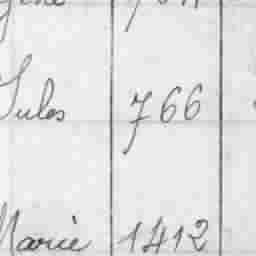 Jules 766
Marie 1412